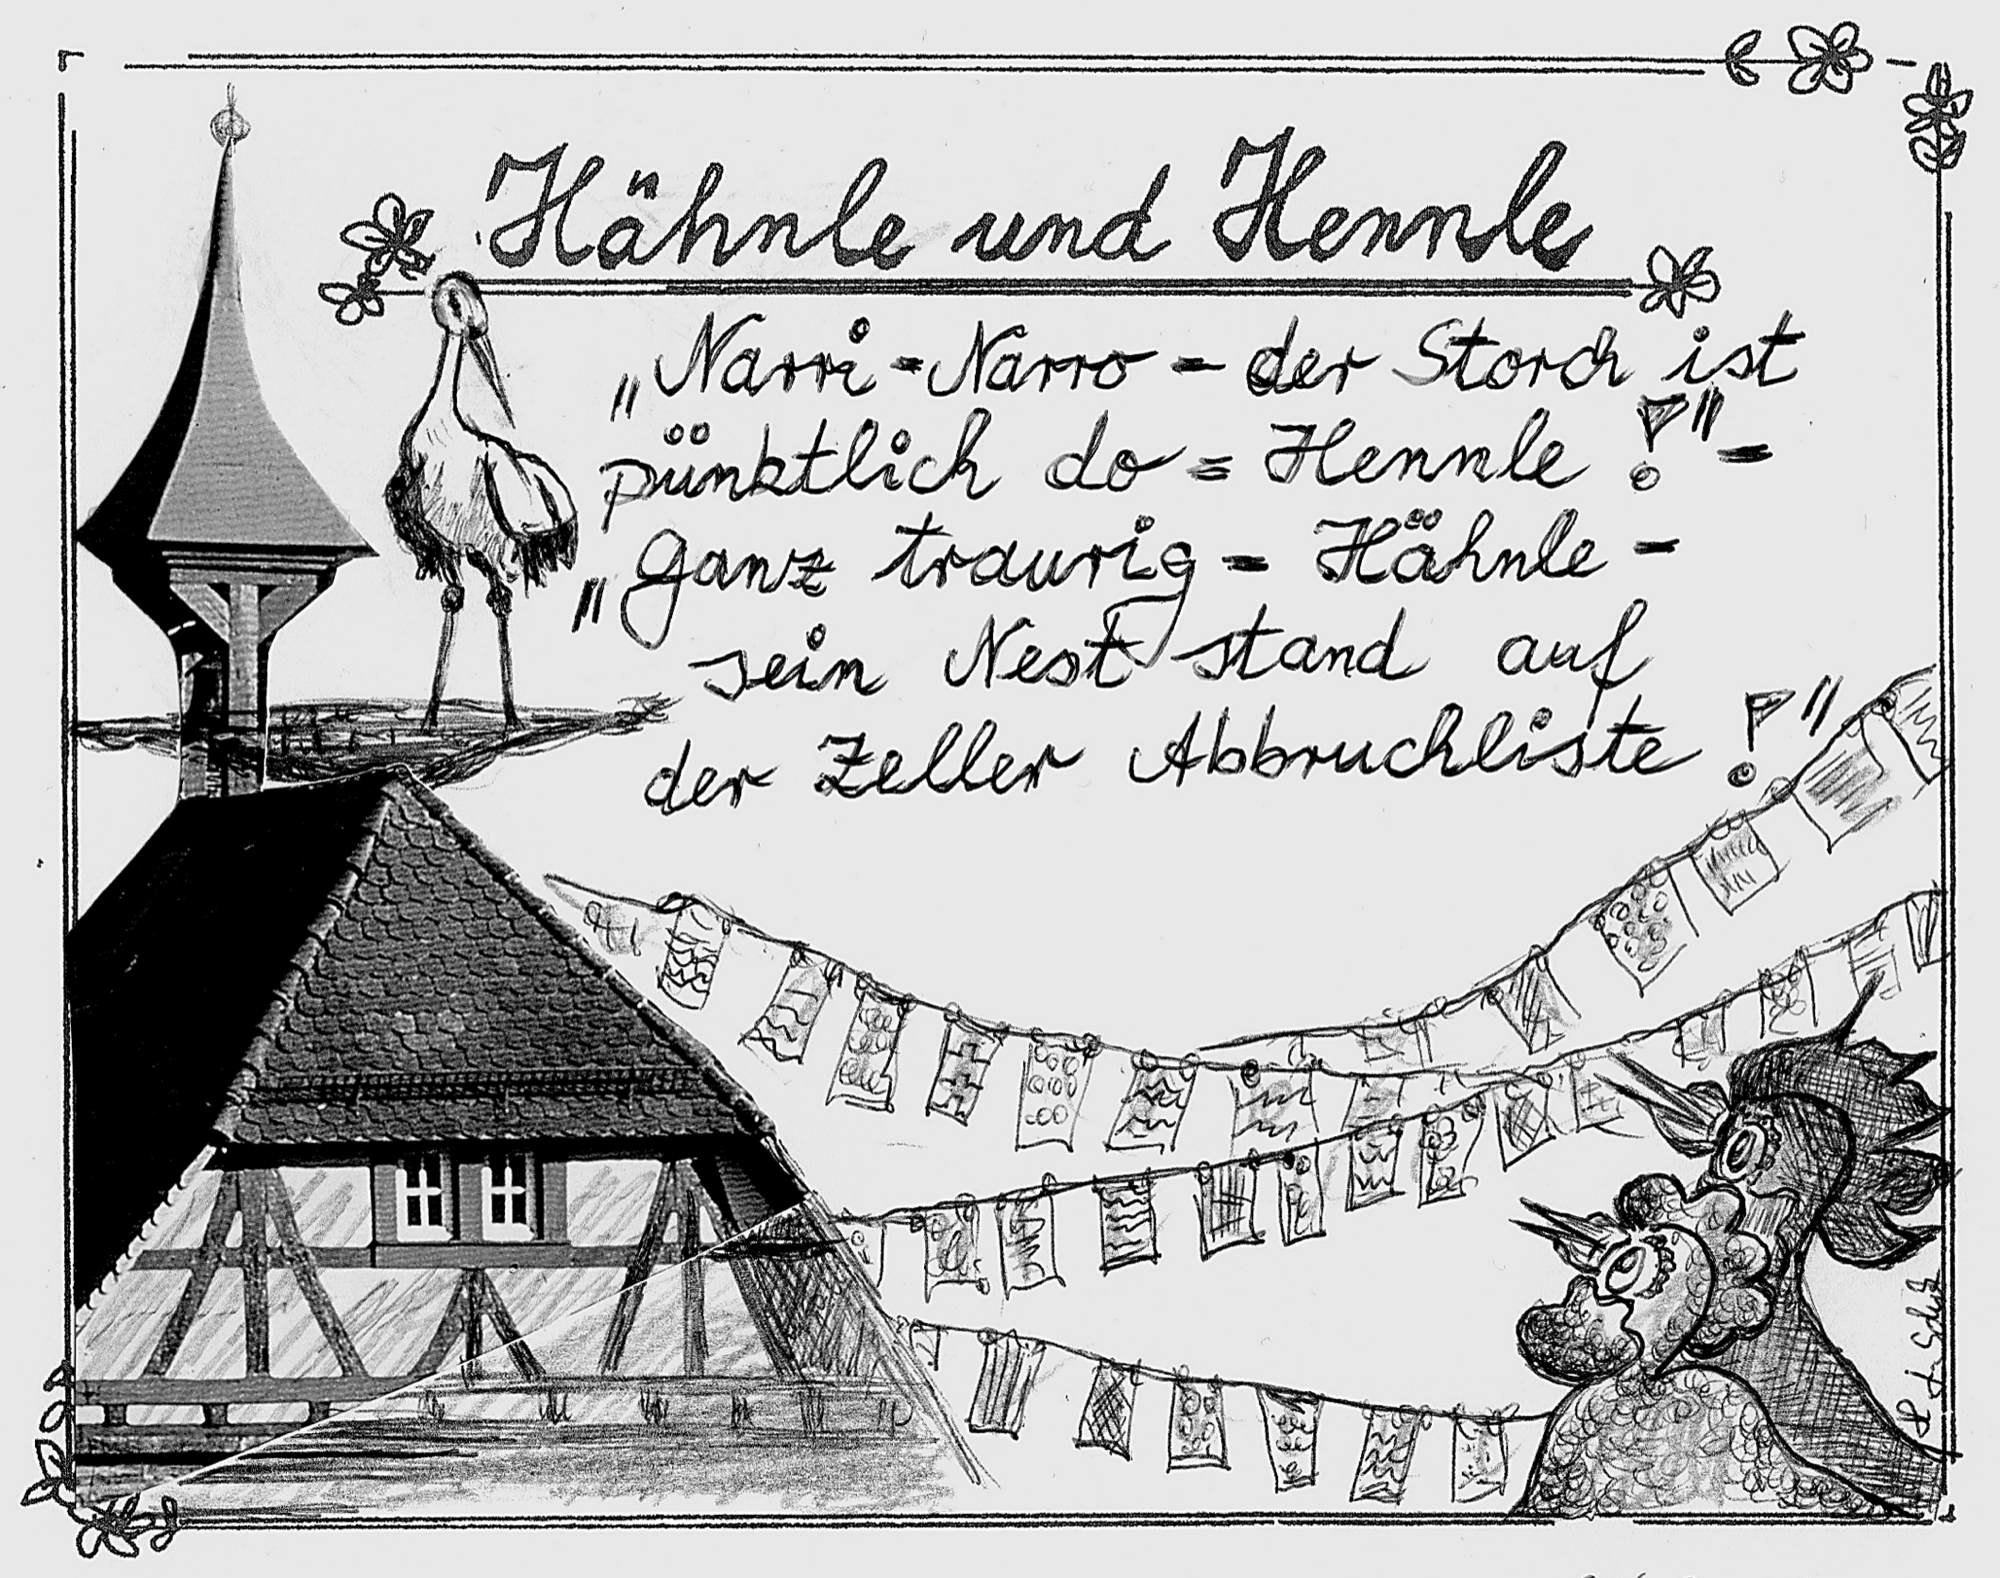 Hähnle und Hennle
„Narri-Narro - der Storch ist
pünktlich do = Hennle!" -
„Ganz traurig = Hähnle -
sein Nest stand auf
der Zeller Abbruchliste!"